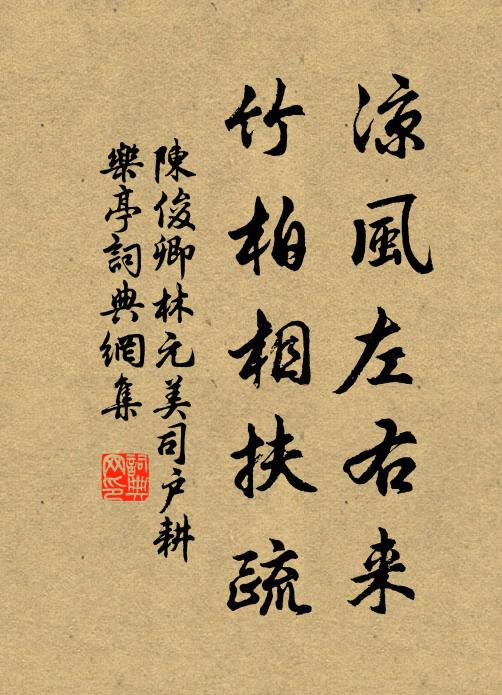 凉風左右来
竹柏相扶疏
陳俊卿林元美司户耕
樂亭詞典網集
詞典網印